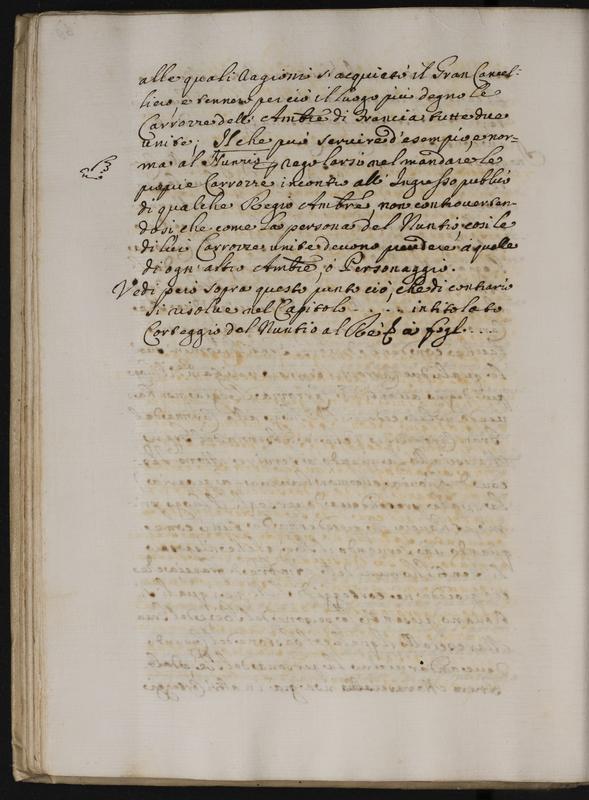 alle quali Ragioni s'acquietò il Gran Cancel:
liere, e tennero perciò il luogo più degno le
Carrozze delli Ambri di Francia tutte due
unite; Il che può servire d'esempio, e nor=
ma al Nuntio regolarsi nel mandare le
proprie Carrozze incontro all' Ingresso publico
di qualche Regio Ambre, non controverten=
dosi che come la persona del Nuntio, così le
di lui Carrozze unite devono precedere à quelle
di ogn' altro Ambre, ò Personaggio.
Vedi però sopra questo punto ciò, che di contrario
si risolve nel Capitolo .... intitolato
Corteggio del Nuntio al Rè È a fogl. ....